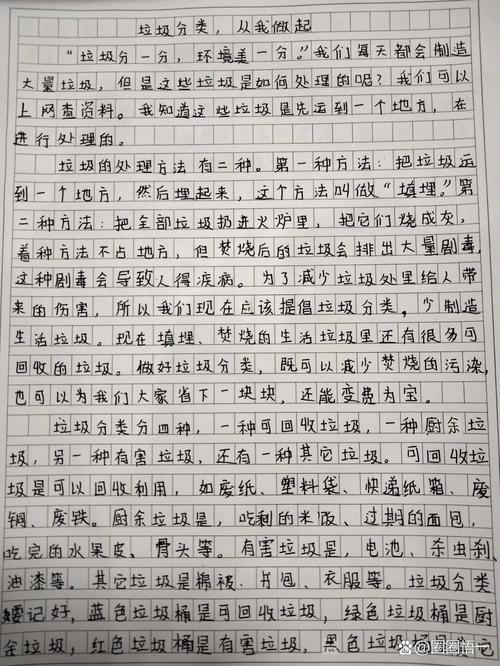 垃圾分类，从我做起
“垃圾分一分，环境美一分。”我们每天都会制造
大量垃圾，但是这些垃圾是如何处理的呢？我们可以
上网查资料。我知道这些垃圾是先运到一个地方，在
进行处理的。
垃圾的处理方法有二种。第一种方法：把垃圾运
到一个地方，然后埋起来，这个方法叫做“填埋。”第
二种方法：把全部垃圾扔进火炉里，把它们烧成灰，
着种方法不占地方，但焚烧后的垃圾会排出大量剧毒，
这种剧毒会导致人得疾病。为了减少垃圾处里给人带
来的伤害，所以我们现在应该提倡垃圾分类，少制造
生活垃圾。现在填埋、焚烧的生活垃圾里还有很多可
回收的垃圾。做好垃圾分类，既可以减少焚烧的污染，
也可以为我们大家省下一块块，还能变费为宝。
垃圾分类分四种，一种可回收垃圾，一种厨余垃
圾，另一种有害垃圾，还有一种其它垃圾。可回收垃
圾是可以回收利用，如废纸、塑料袋、快递纸箱、废
铜、废铁。厨余垃圾是，吃剩的米饭、过期的面包，
吃完的水果皮、骨头等。有害垃圾是，电池、杀虫剂、
油漆等。其它垃圾是棉被、书包、衣服等。垃圾分类
要记好，蓝色垃圾桶是可回收垃圾，绿色垃圾桶是厨
余垃圾，红色垃圾桶是有害垃圾，黑色垃圾桶是其它
@圈圈悟一